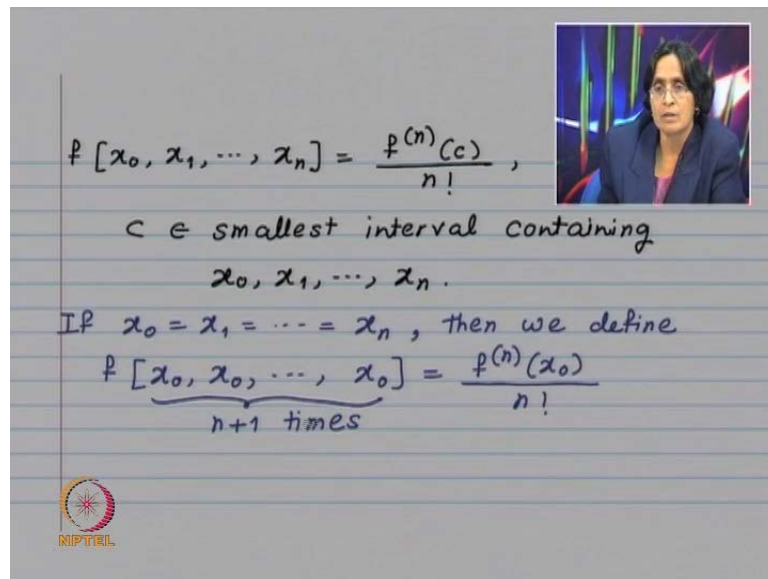 f [x₀, x₁, ⋯, x_n] = f⁽ⁿ⁾(c) / n! ,
c ∈ smallest interval containing
x₀, x₁, ⋯, x_n .
If x₀ = x₁ = ⋯ = x_n , then we define
f [x₀, x₀, ⋯, x₀] = f⁽ⁿ⁾(x₀) / n!
n+1 times
NPTEL